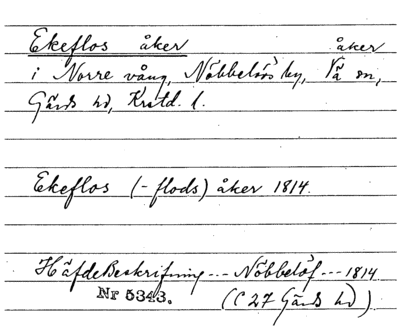 Ekeflos åker åker
i Norre vång, Nöbbelövs by, Vä sn,
Gärds hd, Krstd. l.
Ekeflos (-flods) åker 1814.
HäfdeBeskrifning --- Nöbbelöf --- 1814
Nr 5343. (C 27 Gärds hd)